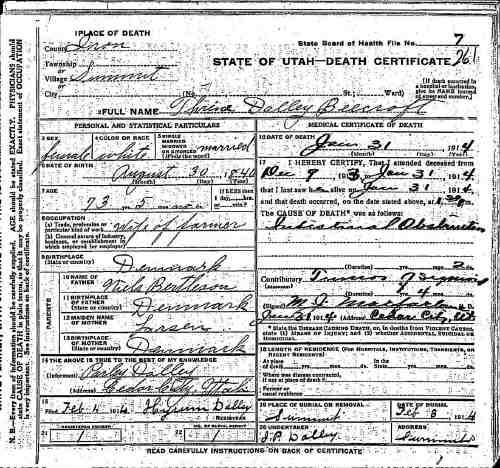 1 PLACE OF DEATH
County Iron
State Board of Health File No. 7
Township
or
Village Summit
STATE OF UTAH—DEATH CERTIFICATE 261
City (No. St.; Ward)
[If death occurred in a hospital or institution, give its NAME instead of street and number.]
2 FULL NAME Dalley Beecroft
PERSONAL AND STATISTICAL PARTICULARS
3 SEX female
4 COLOR OR RACE white
5 SINGLE MARRIED WIDOWED OR DIVORCED (Write the word) married
6 DATE OF BIRTH August 30 1840
(Month) (Day) (Year)
7 AGE 73 yrs. 5 mos.
If LESS than 1 day, hrs. or min.?
8 OCCUPATION
(a) Trade, profession, or particular kind of work wife of farmer
(b) General nature of industry, business, or establishment in which employed (or employer)
9 BIRTHPLACE
(State or country) Denmark
PARENTS
10 NAME OF FATHER Niels Bertleson
11 BIRTHPLACE OF FATHER
(State or country) Denmark
12 MAIDEN NAME OF MOTHER Larsen
13 BIRTHPLACE OF MOTHER
(State or country) Denmark
14 THE ABOVE IS TRUE TO THE BEST OF MY KNOWLEDGE
(Informant) Parley Dalley
(Address) Cedar City, Utah
15
Filed Feb 4, 1914 Hyrum Dalley
REGISTRAR
21 REGISTERED NUMBER 1
22 NO. OF BURIAL PERMIT 1
MEDICAL CERTIFICATE OF DEATH
16 DATE OF DEATH Jan 31 1914
(Month) (Day) (Year)
17 I HEREBY CERTIFY, That I attended deceased from
Dec 9 1913, to Jan 31 1914
that I last saw her alive on Jan 31 1914
and that death occurred, on the date stated above, at
The CAUSE OF DEATH* was as follows:
Intestinal Obstruction
(Duration) yrs. mos. 2 ds.
Contributory Tumors of
(Duration) yrs. 4 mos. ds.
(Signed) M. J. Macfarlane M. D.
Jan 31 1914 (Address) Cedar City, Ut.
* State the Disease Causing Death, or, in deaths from Violent Causes, state (1) Means of Injury; and (2) whether Accidental, Suicidal or Homicidal.
18 LENGTH OF RESIDENCE (For Hospitals, Institutions, Transients, or Recent Residents)
At place of death yrs. mos. ds. In the State yrs. mos. ds.
Where was disease contracted, if not at place of death?
Former or usual residence
19 PLACE OF BURIAL OR REMOVAL Summit
DATE OF BURIAL Feb 3 1914
20 UNDERTAKER J. P. Dalley
ADDRESS Summit
READ CAREFULLY INSTRUCTIONS ON BACK OF CERTIFICATE
N. B.—Every item of information should be carefully supplied. AGE should be stated EXACTLY. PHYSICIANS should state CAUSE OF DEATH in plain terms, so that it may be properly classified. Exact statement of OCCUPATION is very important. See instructions on back of certificate.